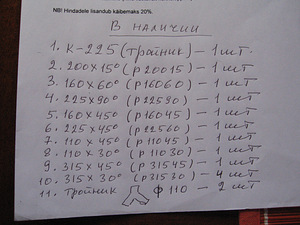 NB! Hindadele lisandub käibemaks 20%.
В НАЛИЧИИ
1. К-225 (тройник) – 1 шт.
2. 200×15° (р 20015) – 1 шт
3. 160×60° (р 16060) – 1 шт
4. 225×90° (р 22590) – 1 шт
5. 160×45° (р 16045) – 1 шт
6. 225×45° (р 22560) – 1 шт
7. 110×45° (р 11045) – 1 шт
8. 110×30° (р 11030) – 1 шт
9. 315×45° (р 31545) – 1 шт
10. 315×30° (р 31530) – 4 шт
11. Тройник ф 110 – 2 шт